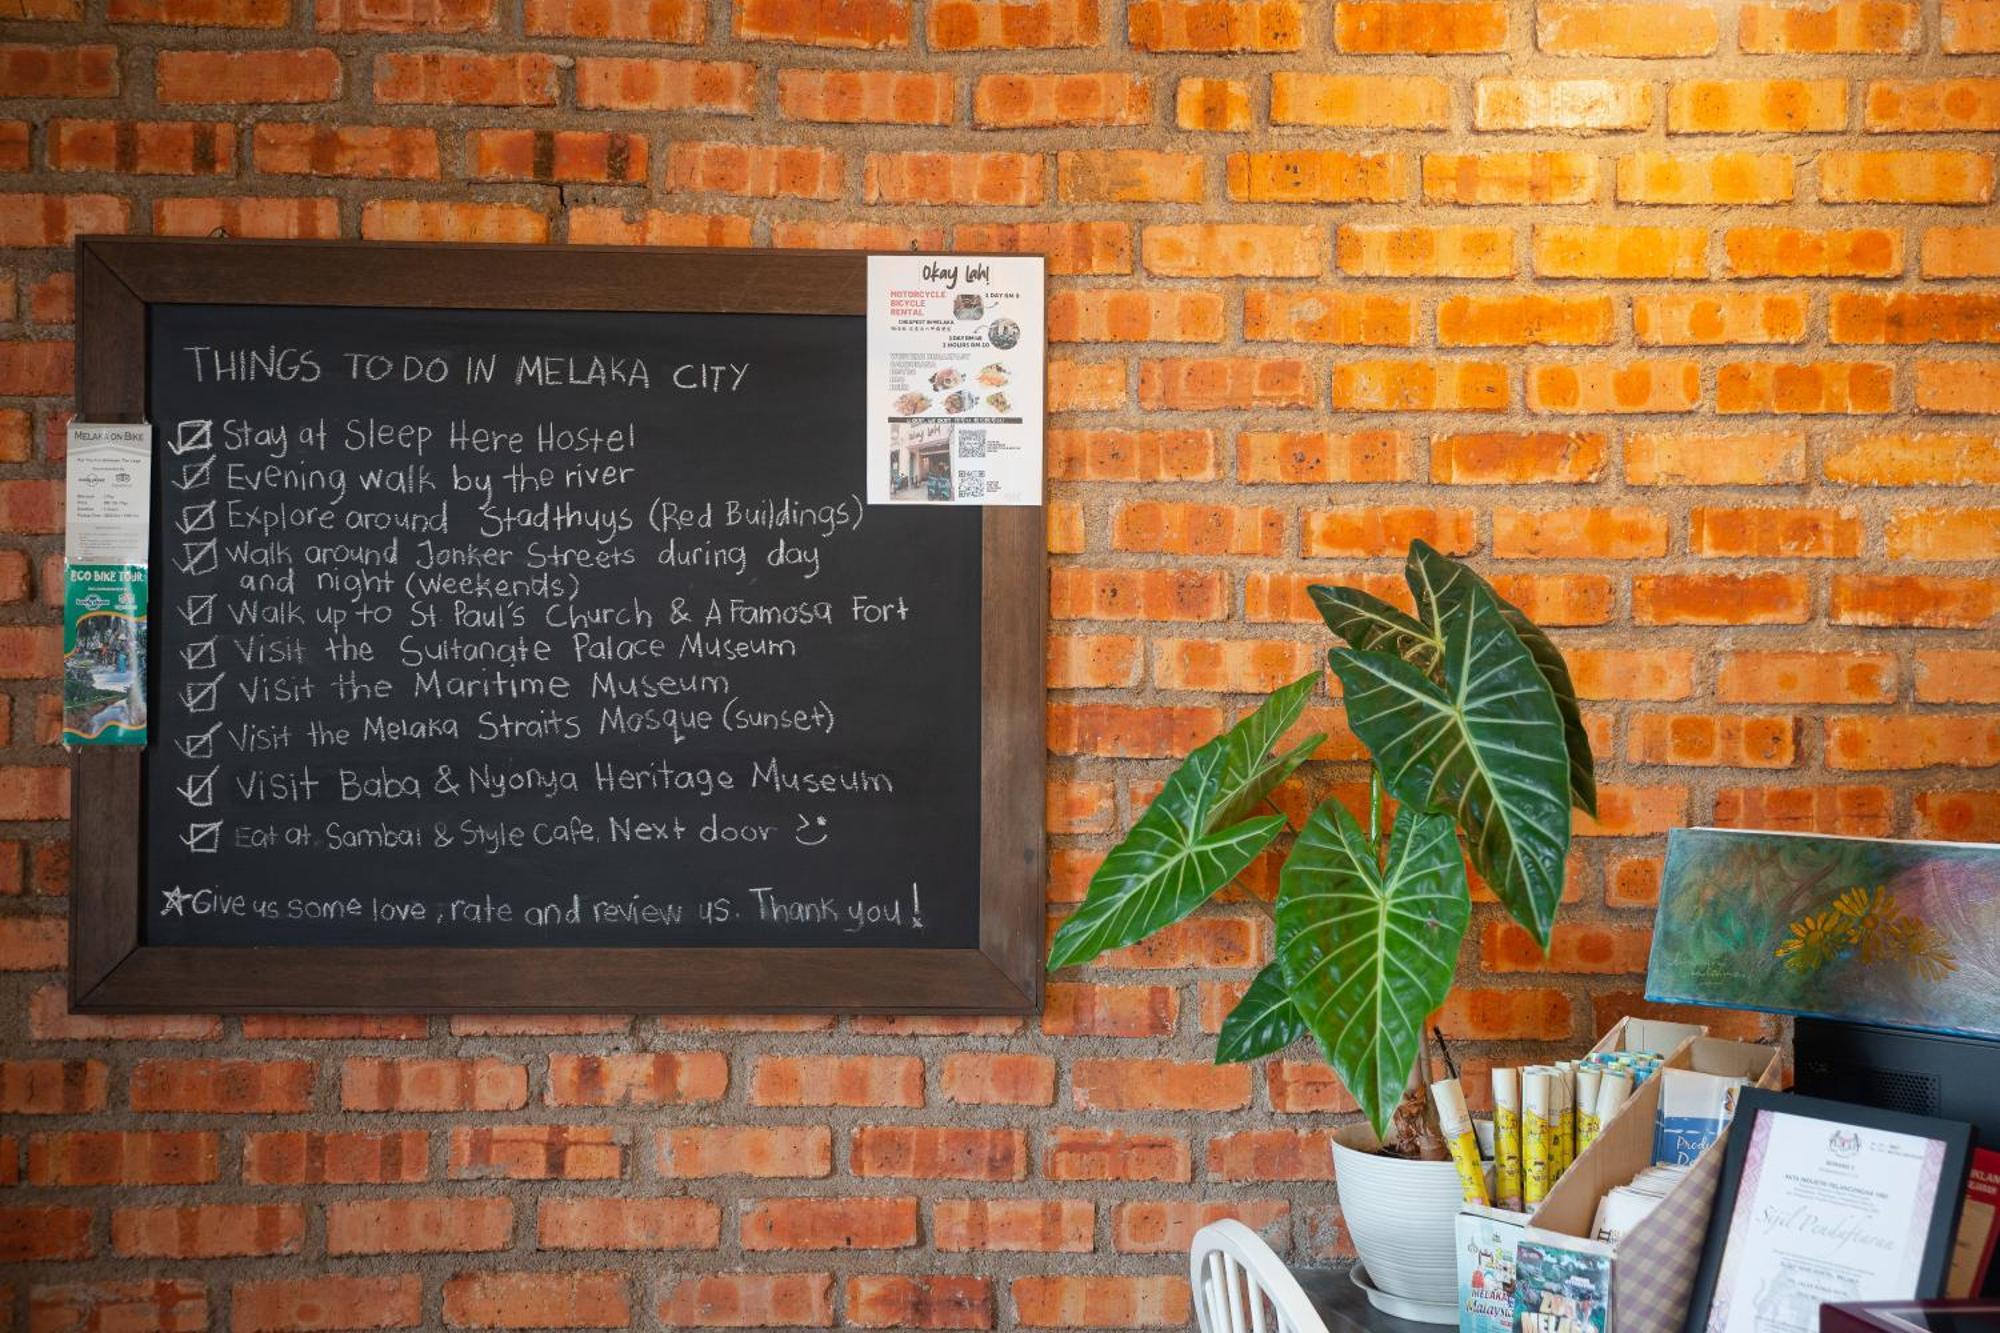 THINGS TO DO IN MELAKA CITY
Stay at Sleep Here Hostel
Evening walk by the river
Explore around Stadthuys (Red Buildings)
Walk around Jonker Streets during day
and night (weekends)
Walk up to St. Paul's Church & A Famosa Fort
Visit the Sultanate Palace Museum
Visit the Maritime Museum
Visit the Melaka Straits Mosque (sunset)
Visit Baba & Nyonya Heritage Museum
Eat at Sambal & Style Cafe. Next door
Give us some love, rate and review us. Thank you!
Okay Lah!
MOTORCYCLE
BICYCLE
RENTAL
CHEAPEST IN MELAKA
MELAKA ON BIKE
ECO BIKE TOUR
AKTA INDUSTRI PELANCONGAN 1992
Sijil Pendaftaran
MELAKA
Malaysia